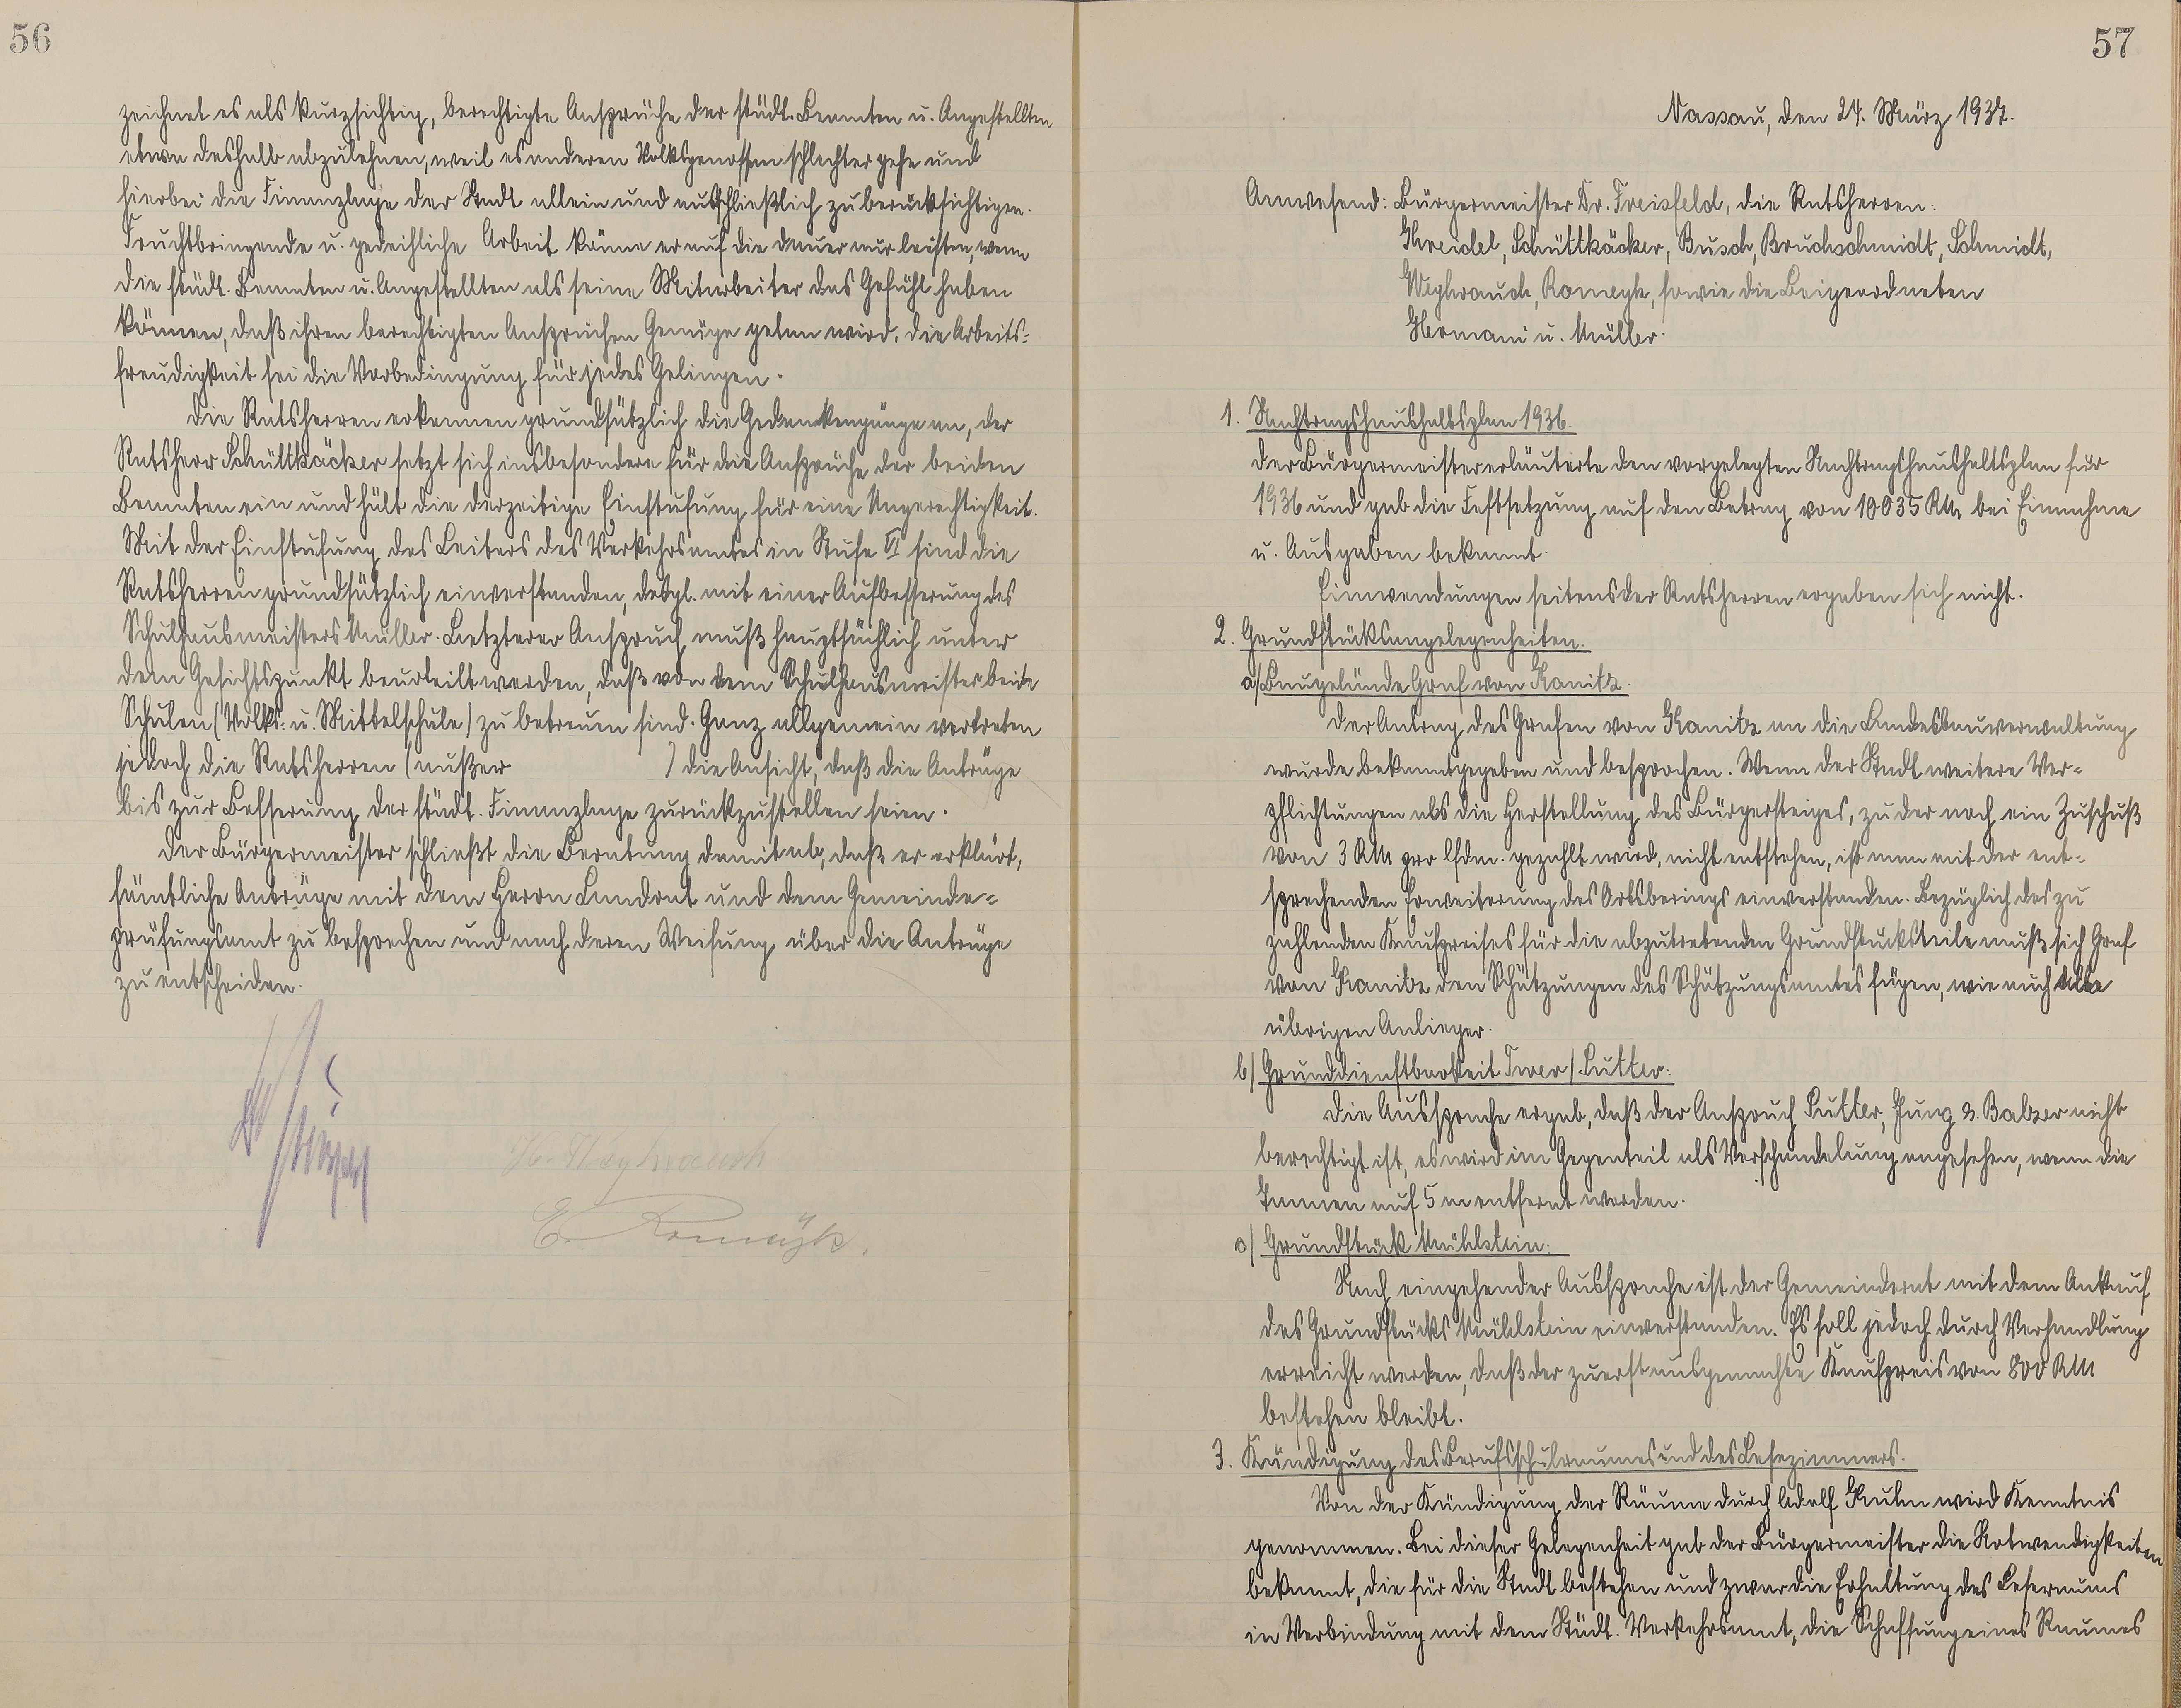 56
zeichnet es als kurzsichtig, berechtigte Ansprüche der städt. Beamten u. Angestellten
etwa deshalb abzulehnen, weil es anderen Volksgenossen schlechter gehe und
hierbei die Finanzlage der Stadt allein und ausschließlich zu berücksichtigen.
Fruchtbringende u. gedeihliche Arbeit könne er auf die Dauer nur leisten, wenn
die städt. Beamten u. Angestellten als seine Mitarbeiter das Gefühl haben
können, daß ihren berechtigten Ansprüchen Genüge getan wird. Die Arbeits-
freudigkeit sei die Vorbedingung für jedes Gelingen.
Die Ratsherren erkennen grundsätzlich die Gedankengänge an, der
Ratsherr Schüttkäcker setzt sich insbesondere für die Ansprüche der beiden
Beamten ein und hält die derzeitige Einstufung für eine Ungerechtigkeit.
Mit der Einstufung des Leiters des Verkehrsamtes in Stufe VI sind die
Ratsherren grundsätzlich einverstanden, desgl. mit einer Aufbesserung des
Schulhausmeisters Müller. Letzterer Anspruch muß hauptsächlich unter
dem Gesichtspunkt beurteilt werden, daß von dem Schulhausmeister beide
Schulen (Volks- u. Mittelschule) zu betreuen sind. Ganz allgemein vertreten
jedoch die Ratsherren (außer ) die Ansicht, daß die Anträge
bis zur Besserung der städt. Finanzlage zurückzustellen seien.
Der Bürgermeister schließt die Beratung damit ab, daß er erklärt,
sämtliche Anträge mit dem Herrn Landrat und dem Gemeinde-
prüfungsamt zu besprechen und nach deren Weisung über die Anträge
zu entscheiden.
H. Weyhrauch
E. Romeyk.
57
Nassau, den 24. März 1937.
Anwesend: Bürgermeister Dr. Freisfeld, die Ratsherren:
Kreidel, Schüttkäcker, Busch, Bruchschmidt, Schmidt,
Weyhrauch, Romeyk, sowie die Beigeordneten
Hermani u. Müller.
1. Nachtragshaushaltsplan 1936.
Der Bürgermeister erläuterte den vorgelegten Nachtragshaushaltsplan für
1936 und gab die Festsetzung auf den Betrag von 10035 RM bei Einnahme
u. Ausgaben bekannt.
Einwendungen seitens der Ratsherren ergaben sich nicht.
2. Grundstücksangelegenheiten.
a/ Baugelände Graf von Kanitz.
Der Antrag des Grafen von Kanitz an die Landesbauverwaltung
wurde bekanntgegeben und besprochen. Wenn der Stadt weitere Ver-
pflichtungen als die Herstellung des Bürgersteiges, zu der noch ein Zuschuß
von 3 RM pro lfdm. gezahlt wird, nicht entstehen, ist man mit der ent-
sprechenden Erweiterung des Ortsberings einverstanden. Bezüglich des zu
zahlenden Kaufpreises für die abzutretenden Grundstücksteile muß sich Graf
von Kanitz den Schätzungen des Schätzungsamtes fügen, wie auch alle
übrigen Anlieger.
b/ Grunddienstbarkeit Twer / Sutter.
Die Aussprache ergab, daß der Anspruch Sutter, Jung & Balzer nicht
berechtigt ist, es wird im Gegenteil als Verschandelung angesehen, wenn die
Tannen auf 5 m entfernt werden.
c/ Grundstück Mühlstein.
Nach eingehender Aussprache ist der Gemeinderat mit dem Ankauf
des Grundstücks Mühlstein einverstanden. Es soll jedoch durch Verhandlung
erreicht werden, daß der zuerst ausgemachte Kaufpreis von 800 RM
bestehen bleibt.
3. Kündigung des Berufsschulraumes und des Lesezimmers.
Von der Kündigung der Räume durch Adolf Kuhn wird Kenntnis
genommen. Bei dieser Gelegenheit gab der Bürgermeister die Notwendigkeiten
bekannt, die für die Stadt bestehen und zwar die Erhaltung des Leseraums
in Verbindung mit dem Städt. Verkehrsamt, die Schaffung eines Raumes